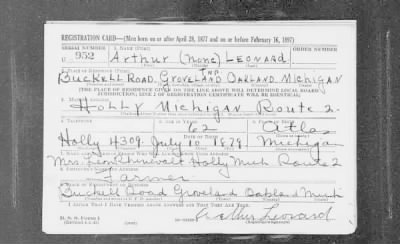 REGISTRATION CARD—(Men born on or after April 28, 1877 and on or before February 16, 1897)
SERIAL NUMBER 1. NAME (Print)
U 952 Arthur (none) Leonard
2. PLACE OF RESIDENCE (Print)
Buckell Road, Groveland Twp Oakland, Michigan
[THE PLACE OF RESIDENCE GIVEN ON THE LINE ABOVE WILL DETERMINE LOCAL BOARD
JURISDICTION; LINE 2 OF REGISTRATION CERTIFICATE WILL BE IDENTICAL]
3. MAILING ADDRESS
Holly Michigan Route 2.
4. TELEPHONE 5. AGE IN YEARS 6. PLACE OF BIRTH
62 Atlas
DATE OF BIRTH
Holly 4309 July 10 1879 Michigan
Mrs. Leon Holly Mich Route 2
8. EMPLOYER'S NAME AND ADDRESS
Farmer
9. PLACE OF EMPLOYMENT OR BUSINESS
Buckell Road Groveland Oakland Mich
I AFFIRM THAT I HAVE VERIFIED ABOVE ANSWERS AND THAT THEY ARE TRUE.
D. S. S. Form 1
Arthur Leonard